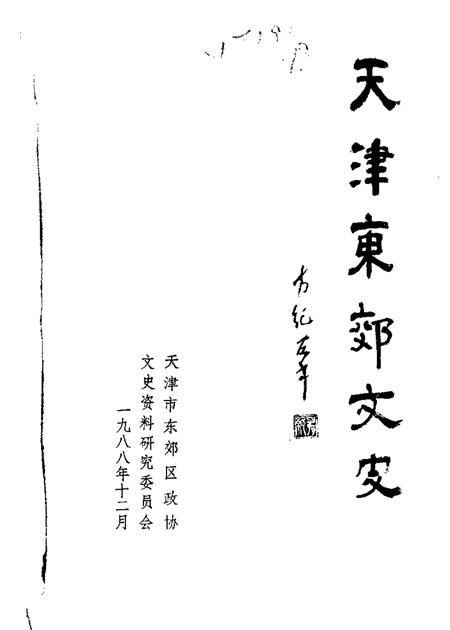 天津東郊文史
方纪左手
天津市东郊区政协
文史资料研究委员会
一九八八年十二月